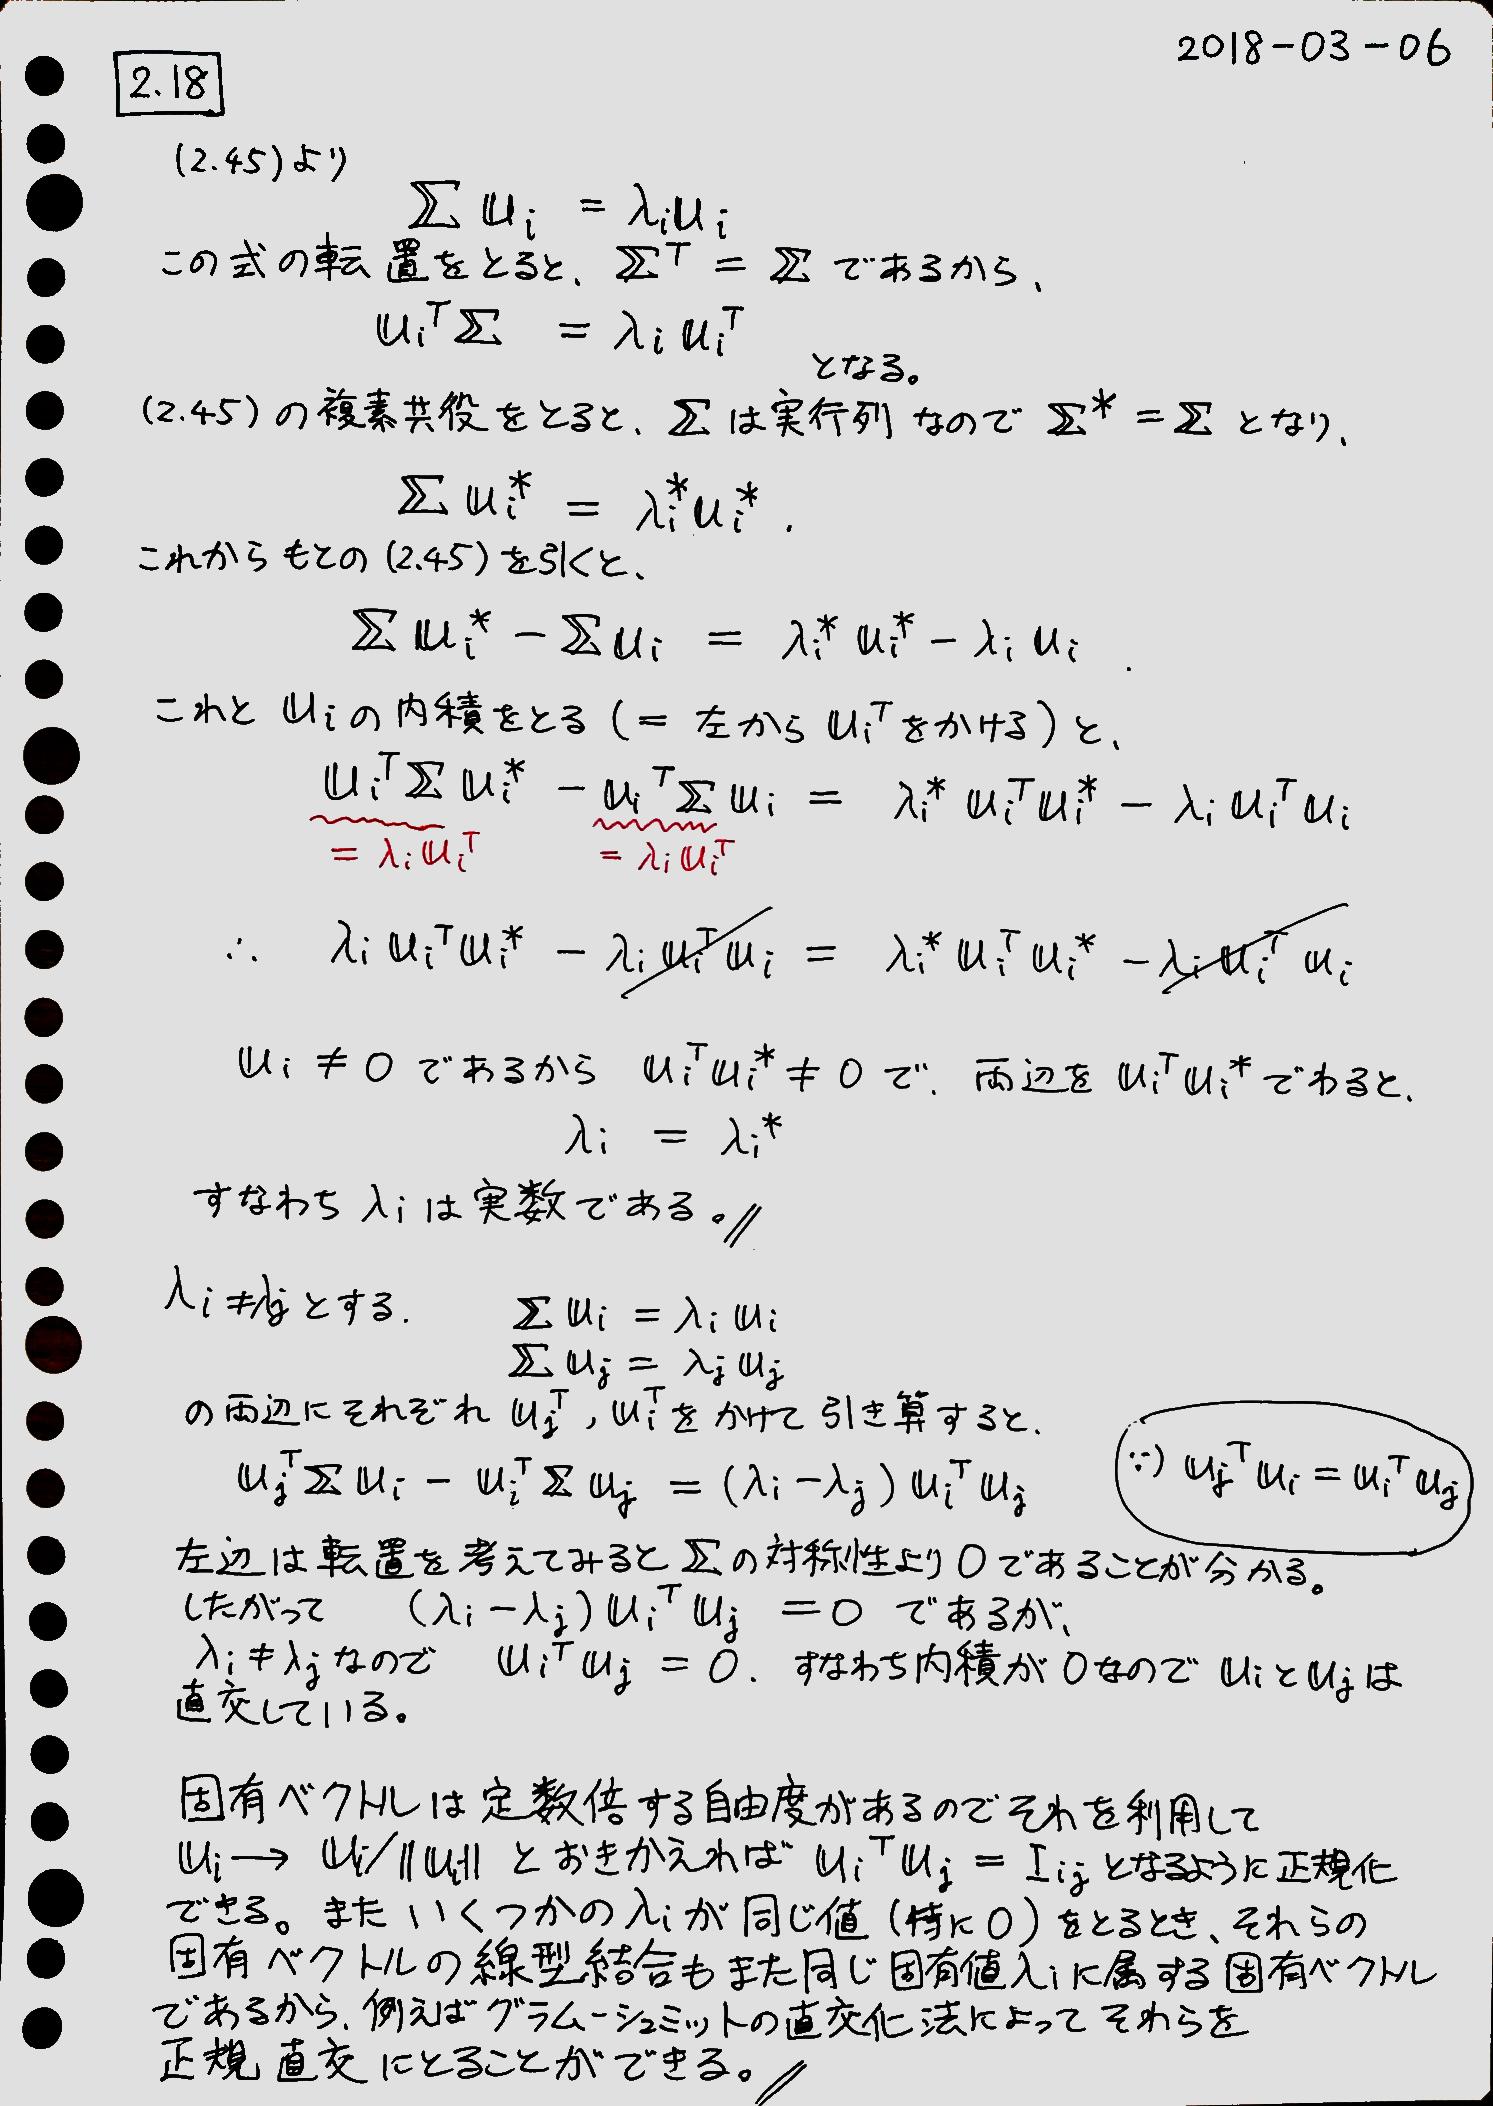 2018-03-06
2.18
(2.45)より
Σ u_i = λ_i u_i
この式の転置をとると、Σ^T = Σ であるから、
u_i^T Σ = λ_i u_i^T
となる。
(2.45)の複素共役をとると、Σは実行列なので Σ^* = Σ となり、
Σ u_i^* = λ_i^* u_i^*.
これからもとの(2.45)を引くと、
Σ u_i^* − Σ u_i = λ_i^* u_i^* − λ_i u_i.
これと u_i の内積をとる(= 左から u_i^T をかける)と、
u_i^T Σ u_i^* − u_i^T Σ u_i = λ_i^* u_i^T u_i^* − λ_i u_i^T u_i
= λ_i u_i^T = λ_i u_i^T
∴ λ_i u_i^T u_i^* − λ_i u_i^T u_i = λ_i^* u_i^T u_i^* − λ_i u_i^T u_i
u_i ≠ 0 であるから u_i^T u_i^* ≠ 0 で、両辺を u_i^T u_i^* でわると、
λ_i = λ_i^*
すなわち λ_i は実数である。//
λ_i ≠ λ_j とする. Σ u_i = λ_i u_i
Σ u_j = λ_j u_j
の両辺にそれぞれ u_j^T, u_i^T をかけて引き算すると、
u_j^T Σ u_i − u_i^T Σ u_j = (λ_i − λ_j) u_i^T u_j
∵) u_j^T u_i = u_i^T u_j
左辺は転置を考えてみると Σ の対称性より 0 であることが分かる。
したがって (λ_i − λ_j) u_i^T u_j = 0 であるが、
λ_i ≠ λ_j なので u_i^T u_j = 0. すなわち内積が 0 なので u_i と u_j は
直交している。
固有ベクトルは定数倍する自由度があるのでそれを利用して
u_i → u_i/||u_i|| とおきかえれば u_i^T u_j = I_ij となるように正規化
できる。またいくつかの λ_i が同じ値(特に 0)をとるとき、それらの
固有ベクトルの線型結合もまた同じ固有値 λ_i に属する固有ベクトル
であるから、例えばグラム−シュミットの直交化法によってそれらを
正規直交にとることができる。//